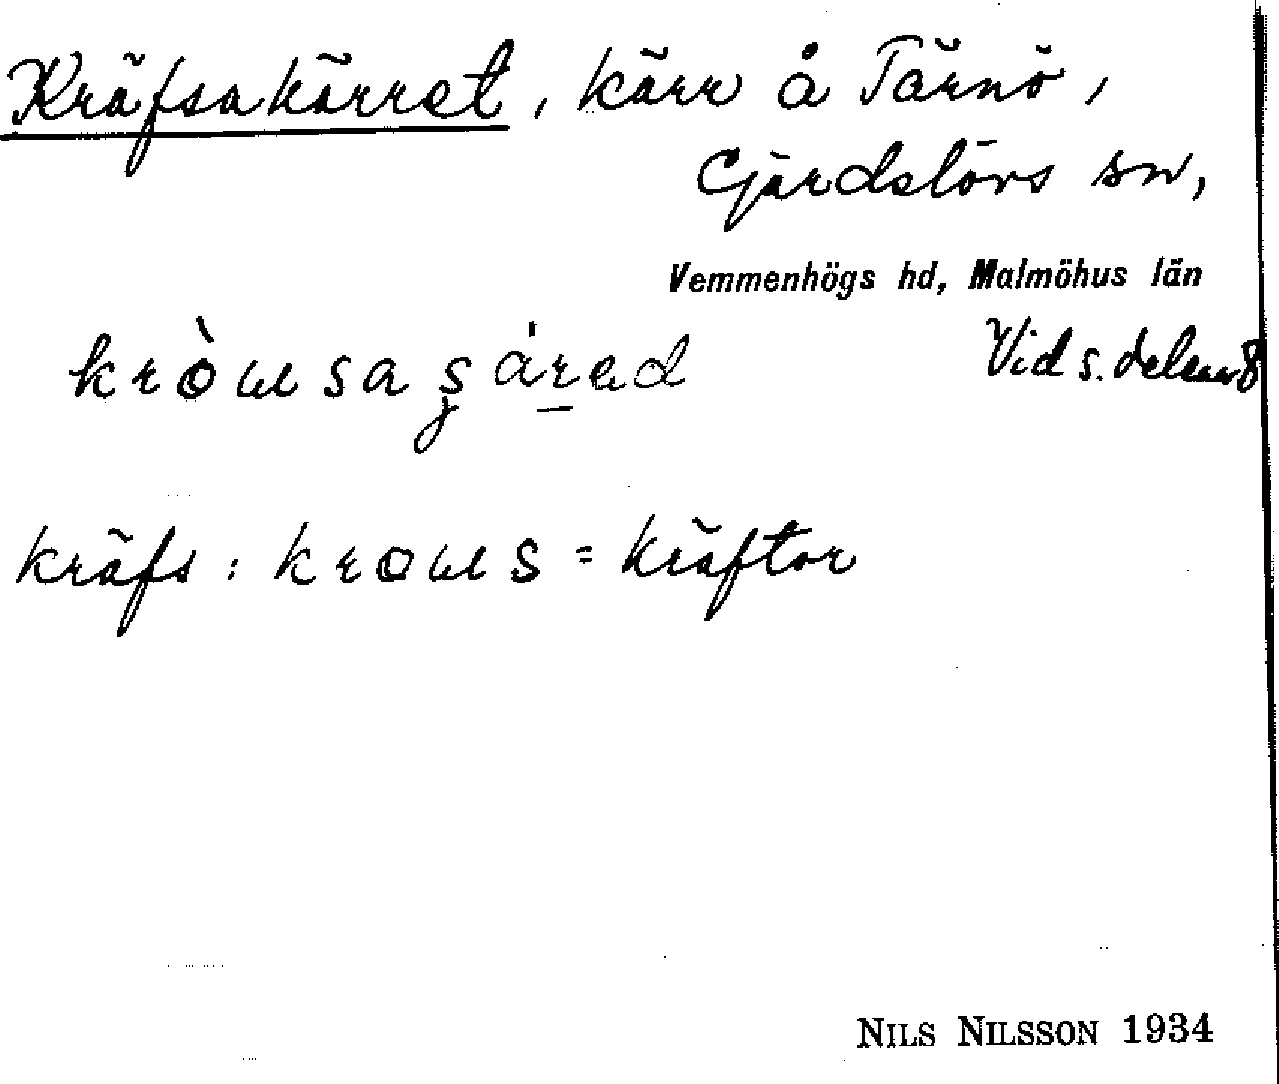 Kräfsakärret, kärr å Tärnö,
Gärdslövs sn,
Vemmenhögs hd, Malmöhus län
kròusaʂárad Vid s. delen
kräfs: krous = kräftor
NILS NILSSON 1934